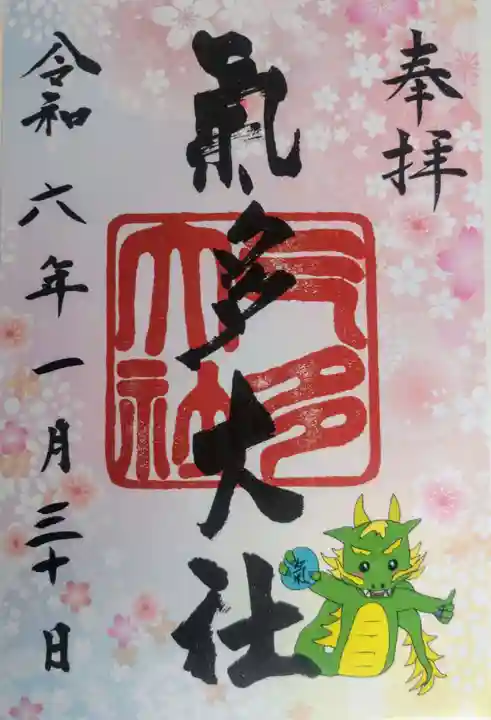 奉拝
氣多大社
气多
大社
氣
令和六年一月三十日